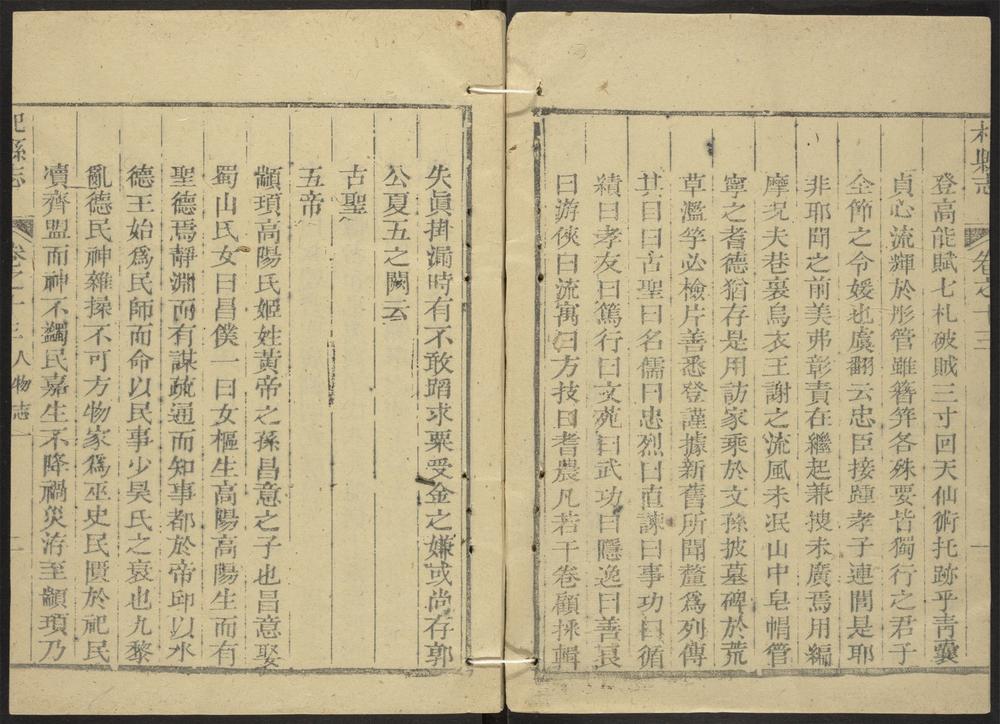 杞縣志
卷之十三
一
登高能賦七札破賊三寸回天仙術托跡乎青囊
貞心流輝於彤管雖簪笄各殊要皆獨行之君子
全節之令媛也虞翻云忠臣接踵孝子連閭是耶
非耶聞之前美弗彰責在繼起兼搜未廣焉用編
摩况夫巷裏烏衣王謝之流風未泯山中皂帽管
寧之耆德猶存是用訪家乘於文孫披墓碑於荒
草濫竽必檢片善悉登謹據新舊所聞釐爲列傳
其目曰古聖曰名儒曰忠烈曰直諫曰事功曰循
績曰孝友曰篤行曰文苑曰武功曰隱逸曰善良
曰游俠曰流寓曰方技曰耆農凡若干卷顧採輯
失眞掛漏時有不敢蹈求粟受金之嫌或尚存郭
公夏五之闕云
古聖
五帝
顓頊高陽氏姬姓黃帝之孫昌意之子也昌意娶
蜀山氏女曰昌僕一曰女樞生高陽高陽生而有
聖德焉靜淵而有謀疏通而知事都於帝邱以水
德王始爲民師而命以民事少昊氏之衰也九黎
亂德民神雜揉不可方物家爲巫史民匱於祀民
凟齊盟而神不蠲民嘉生不降禍災洊至顓頊乃
杞縣志
卷之十三
人物志一
二